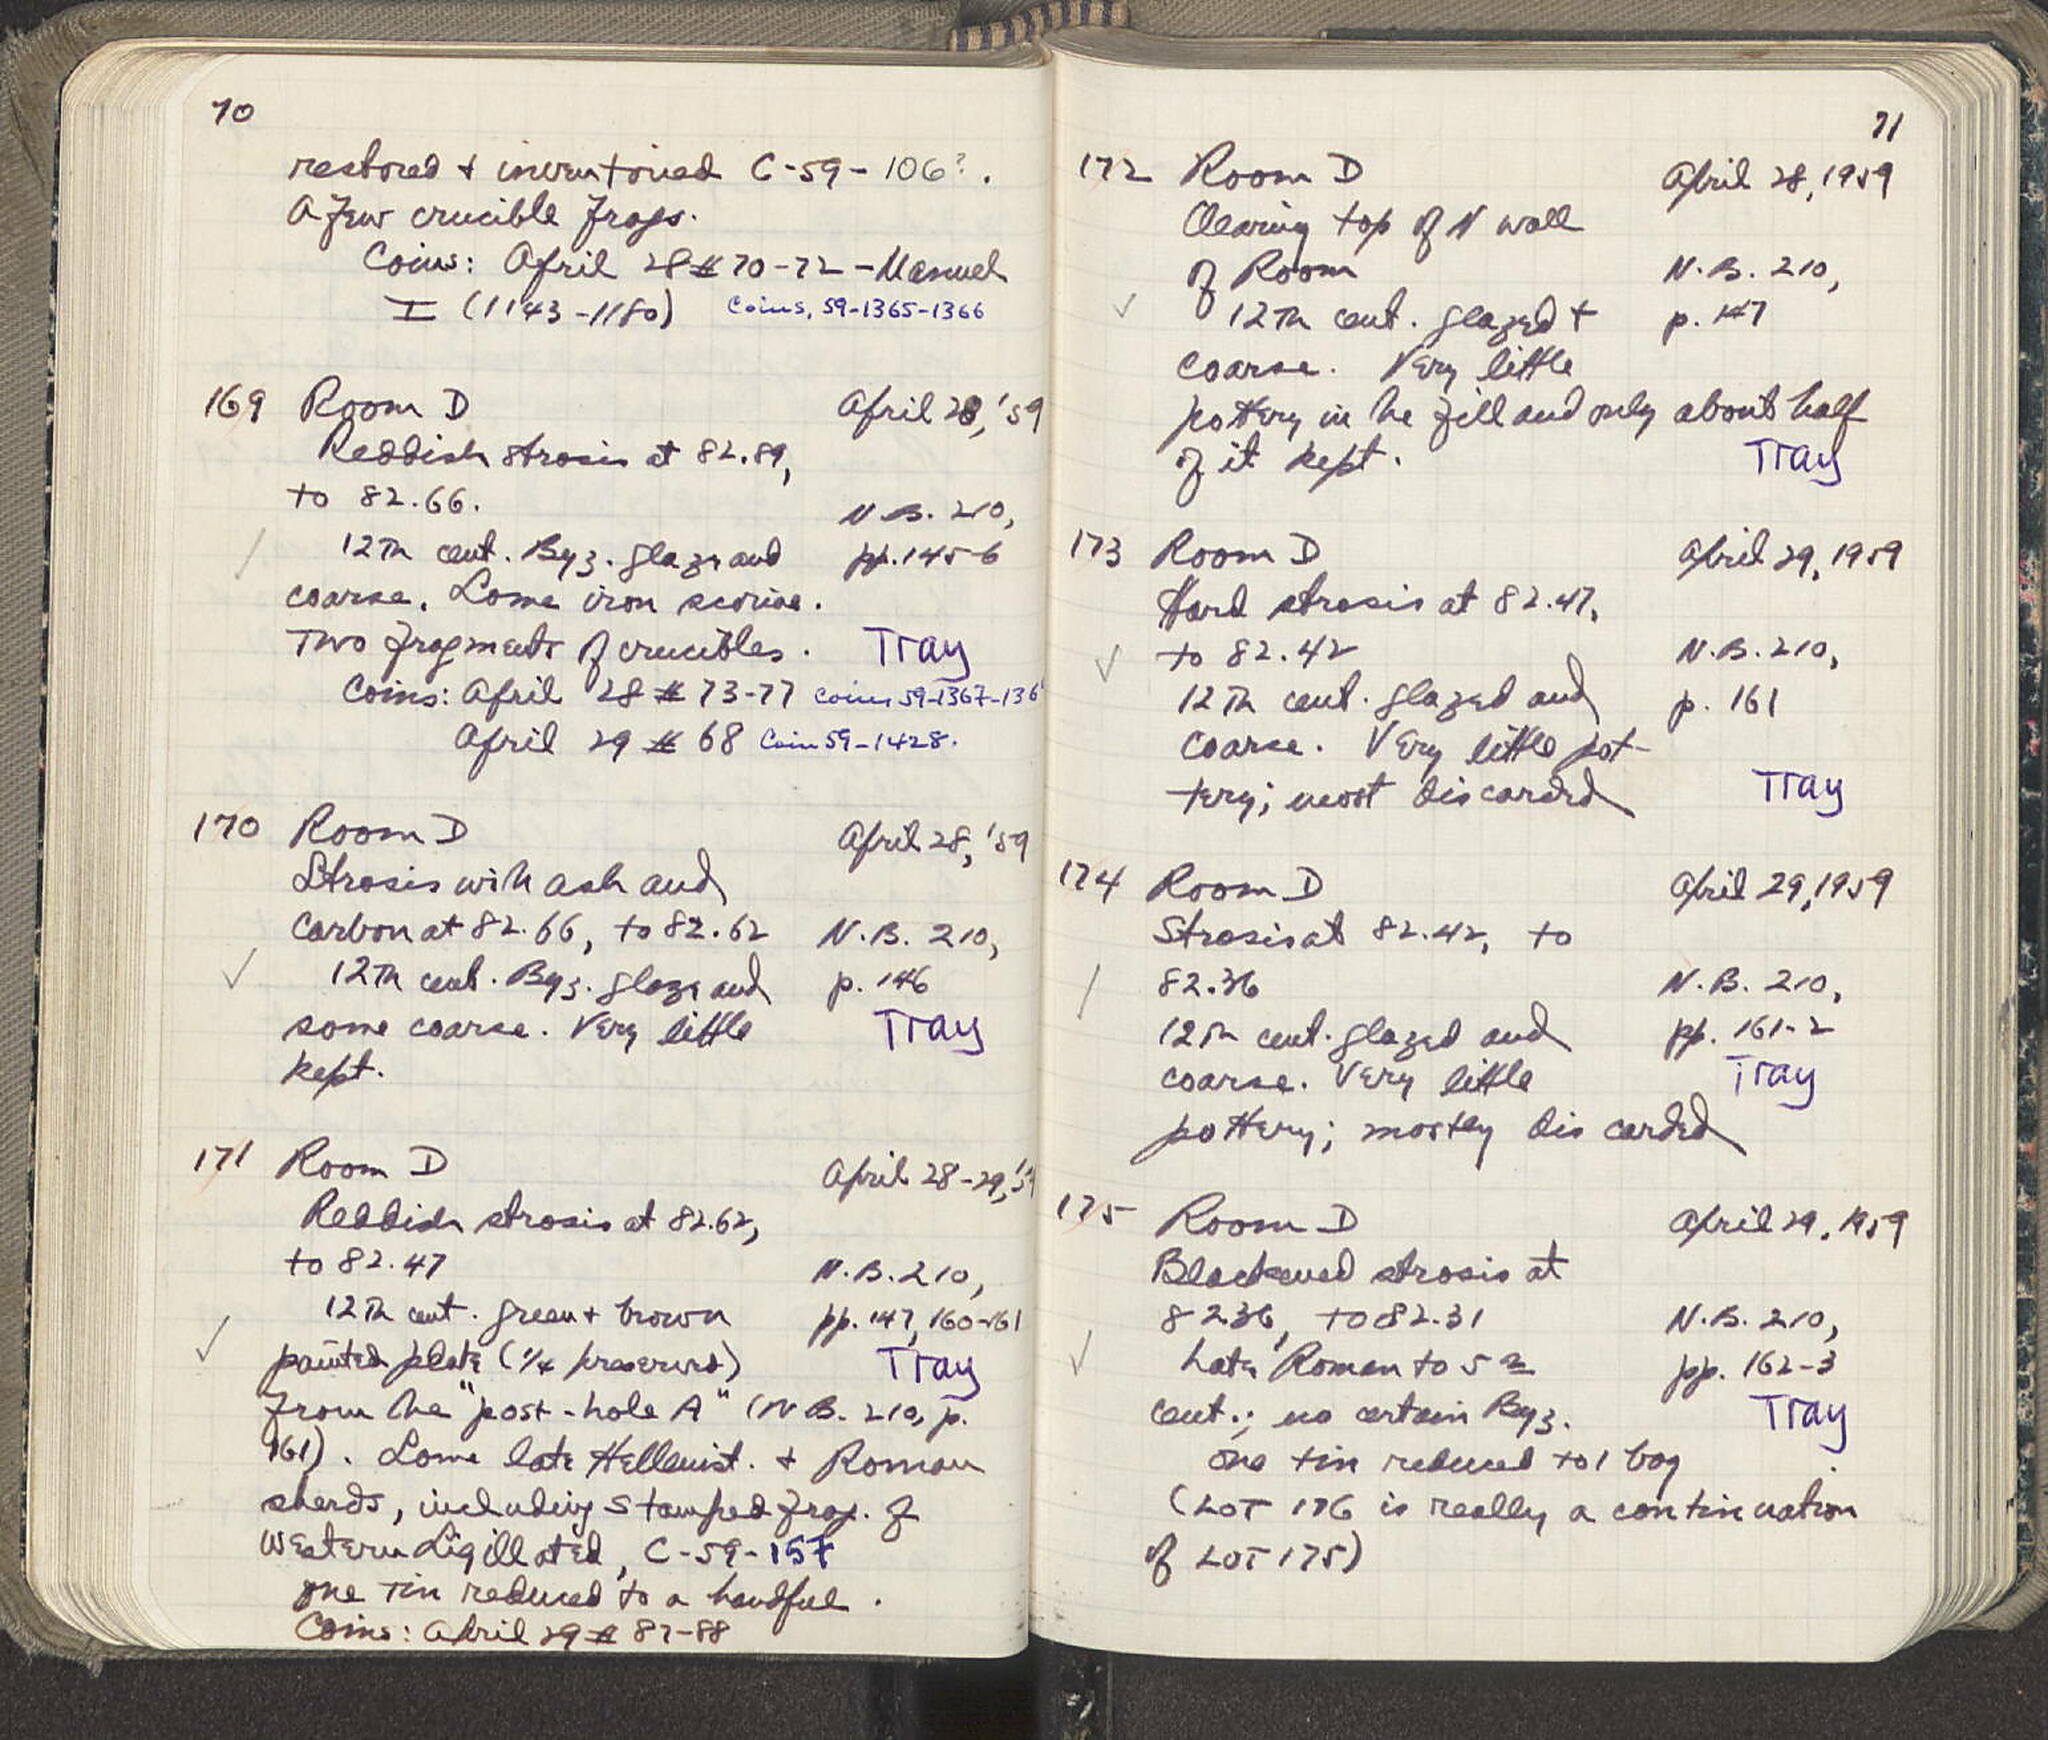 70
restored + inventoried C-59-106?.
A few crucible frags.
Coins: April 28 # 70-72 - Manuel
I (1143-1180) Coins, 59-1365-1366
169 Room D April 28, '59
Reddish strosis at 82.89,
to 82.66. N.B. 210,
12th cent. Byz. glaze and pp. 145-6
coarse. Some iron scoriae.
Two fragments of crucibles. Tray
Coins: April 28 # 73-77 Coins 59-1367-136
April 29 # 68 Coin 59-1428.
170 Room D April 28, '59
Strosis with ash and
carbon at 82.66, to 82.62 N.B. 210,
12th cent. Byz. glaze and p. 146
some coarse. Very little Tray
kept.
171 Room D April 28-29, '59
Reddish strosis at 82.62,
to 82.47 N.B. 210,
12th cent. green + brown pp. 147, 160-161
painted plate (1/4 preserved) Tray
from the "post-hole A" (N.B. 210, p.
161). Some late Hellenist. + Roman
sherds, including stamped frag. of
Western Sigillated, C-59-157
One tin reduced to a handful.
Coins: April 29 # 87-88
71
172 Room D April 28, 1959
Clearing top of N wall
of Room N.B. 210,
12th cent. glazed + p. 147
coarse. Very little
pottery in the fill and only about half
of it kept. Tray
173 Room D April 29, 1959
Hard strosis at 82.47,
to 82.42 N.B. 210,
12th cent. glazed and p. 161
coarse. Very little pot-
tery; most discarded Tray
174 Room D April 29, 1959
Strosis at 82.42, to
82.36 N.B. 210,
12th cent. glazed and pp. 161-2
coarse. Very little Tray
pottery; mostly discarded
175 Room D April 29, 1959
Blackened strosis at
82.36, to 82.31 N.B. 210,
Late Roman to 5th pp. 162-3
cent.; no certain Byz. Tray
One tin reduced to 1 bag
(LOT 176 is really a continuation
of LOT 175)